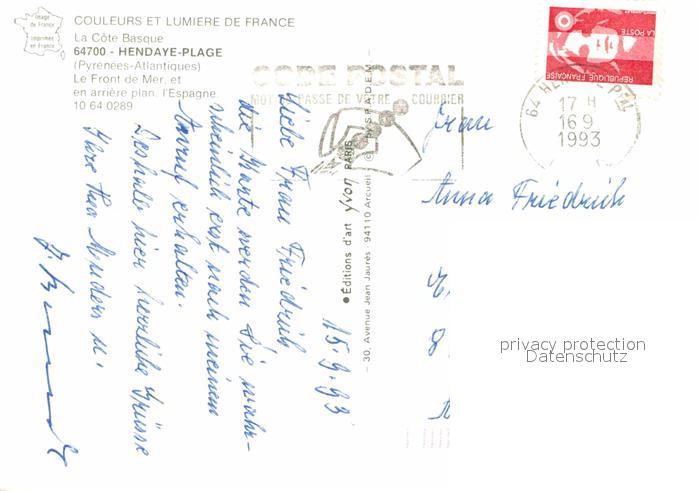 Image
de France
imprimée
en France
COULEURS ET LUMIERE DE FRANCE
La Côte Basque
64700 - HENDAYE-PLAGE
(Pyrénées-Atlantiques)
Le Front de Mer, et
en arrière plan, l'Espagne.
10 64 0289
CODE POSTAL
MOT PASSE DE VOTRE COURRIER
REPUBLIQUE FRANÇAISE
LA POSTE
64 HENDAYE PPAL
17 H
16 9
1993
●Editions d'art yvon PARIS
- 30, Avenue Jean Jaurès - 94110 Arcueil
15.9.93
Liebe Frau Friedrich
die Karte werden Sie wahr-
scheinlich erst nach meinem
Anruf erhalten.
Deshalb hier herzliche Grüsse
Ihre
Frau
Anna Friedrich
8
privacy protection
Datenschutz